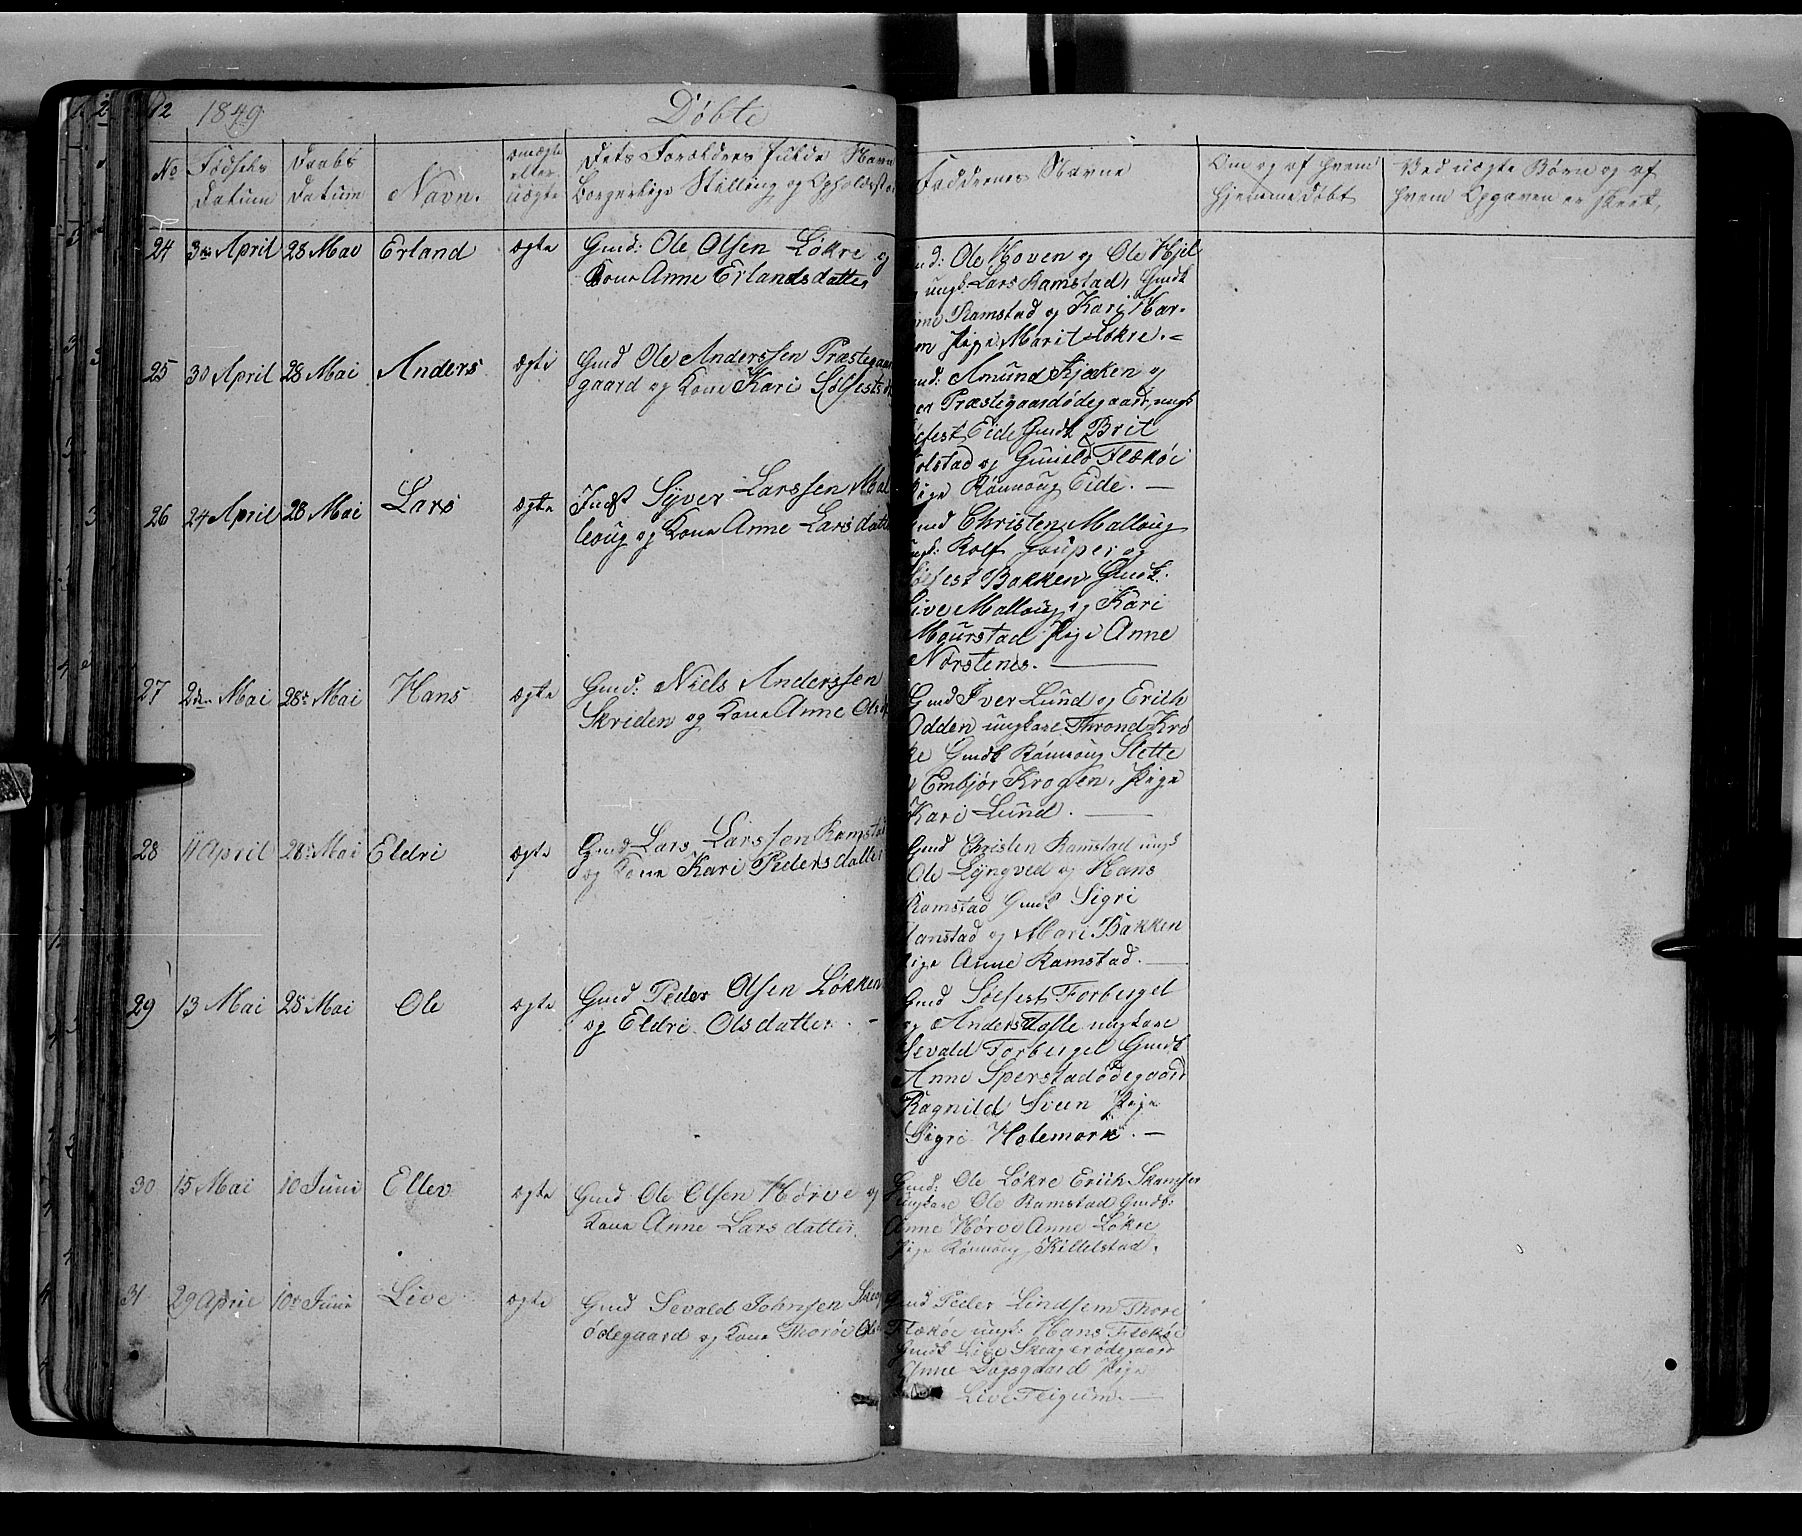 12 1849 Døbte
No Fødsels Datum Daabs Datum Navn. ægte eller uægte Dets Forældres fulde Navn Borgerlige Stilling og Opholdsst
Faddernes Navne Om og af hvem hjemmedøbt Ved uægte Børn og af hvem Opgaven er skeet,
24 3die April 28 Mai Erland ægte Gmd: Ole Olsen Løkre og
Kone Anne Erlandsdatter
Ole Hoven og Ole Hjel
ungk: Lars Ramstad, Gmdk
Ramstad og Kari Har-
Pige Marit Løkre. -
25 30 April 28 Mai Anders ægte Gmd Ole Anderssen Præstegaar
gaard og Kone Kari Sølfests
Amund Kjæken og
Præstegaardødegaard, ungk
Eide Gmdk Brit
og Gunild Flækøi
Pige Rønnoug Eide. -
26 24 April 28 Mai Lars ægte Indst Syver Larssen Mal
loug og Kone Anne Larsdatte
Gmd Christen Malloug
ungk: Rolf Gouper og
Sølfest Bakken, Gmdk:
Live Malloug og Kari
Mourstad Pige Anne
Norstenes. -
27 2den Mai 28de Mai Hans ægte Gmd: Niels Anderssen
Skriden og Kone Anne Ols
Gmd Iver Lund og Erich
Odden ungkarl Thrond Kro
ke Gmdk Rønnoug Slette
Embjør Krogen, Pige
Kari Lund. -
28 11 April 28de Mai Eldri ægte Gmd Lars Larssen Ramsta
og Kone Kari Pedersdatter
Gmd Christen Ramstad ungk
Ole Lyngved og Hans
Ramstad Gmdk Sigri
og Mari Bakken
Pige Anne Ramstad. -
29 13 Mai 28 Mai Ole ægte Gmd Peder Olsen Løkken
og Eldri Olsdatter. -
Gmd Sølfest Forbergel
og Anders Tofte ungkarl
Sevald Forbergel Gmdk
Anne Sperstadødegaard
Ragnild Sveen Pige
Sigri Holemork. -
30 15 Mai 10 Juni Ellev ægte Gmd Ole Olsen Hørve og
Kone Anne Larsdatter.
Gmd: Ole Løkre Erich Skamsar
ungkarl Ole Ramstad Gmdk:
Anne Hørve Anne Løkre
Pige Rønnoug Killelstad.
31 29 April 10de Juni Live ægte Gmd Sevald Johnsen
ødegaard og Kone Thorøe Ols
Gmd Peder Lindsem Thore
Flækøe ungk: Hans Flækøe
Gmdk Live Skeagerødegaard
Anne Dagsgaard Pige
Live Teigum. -